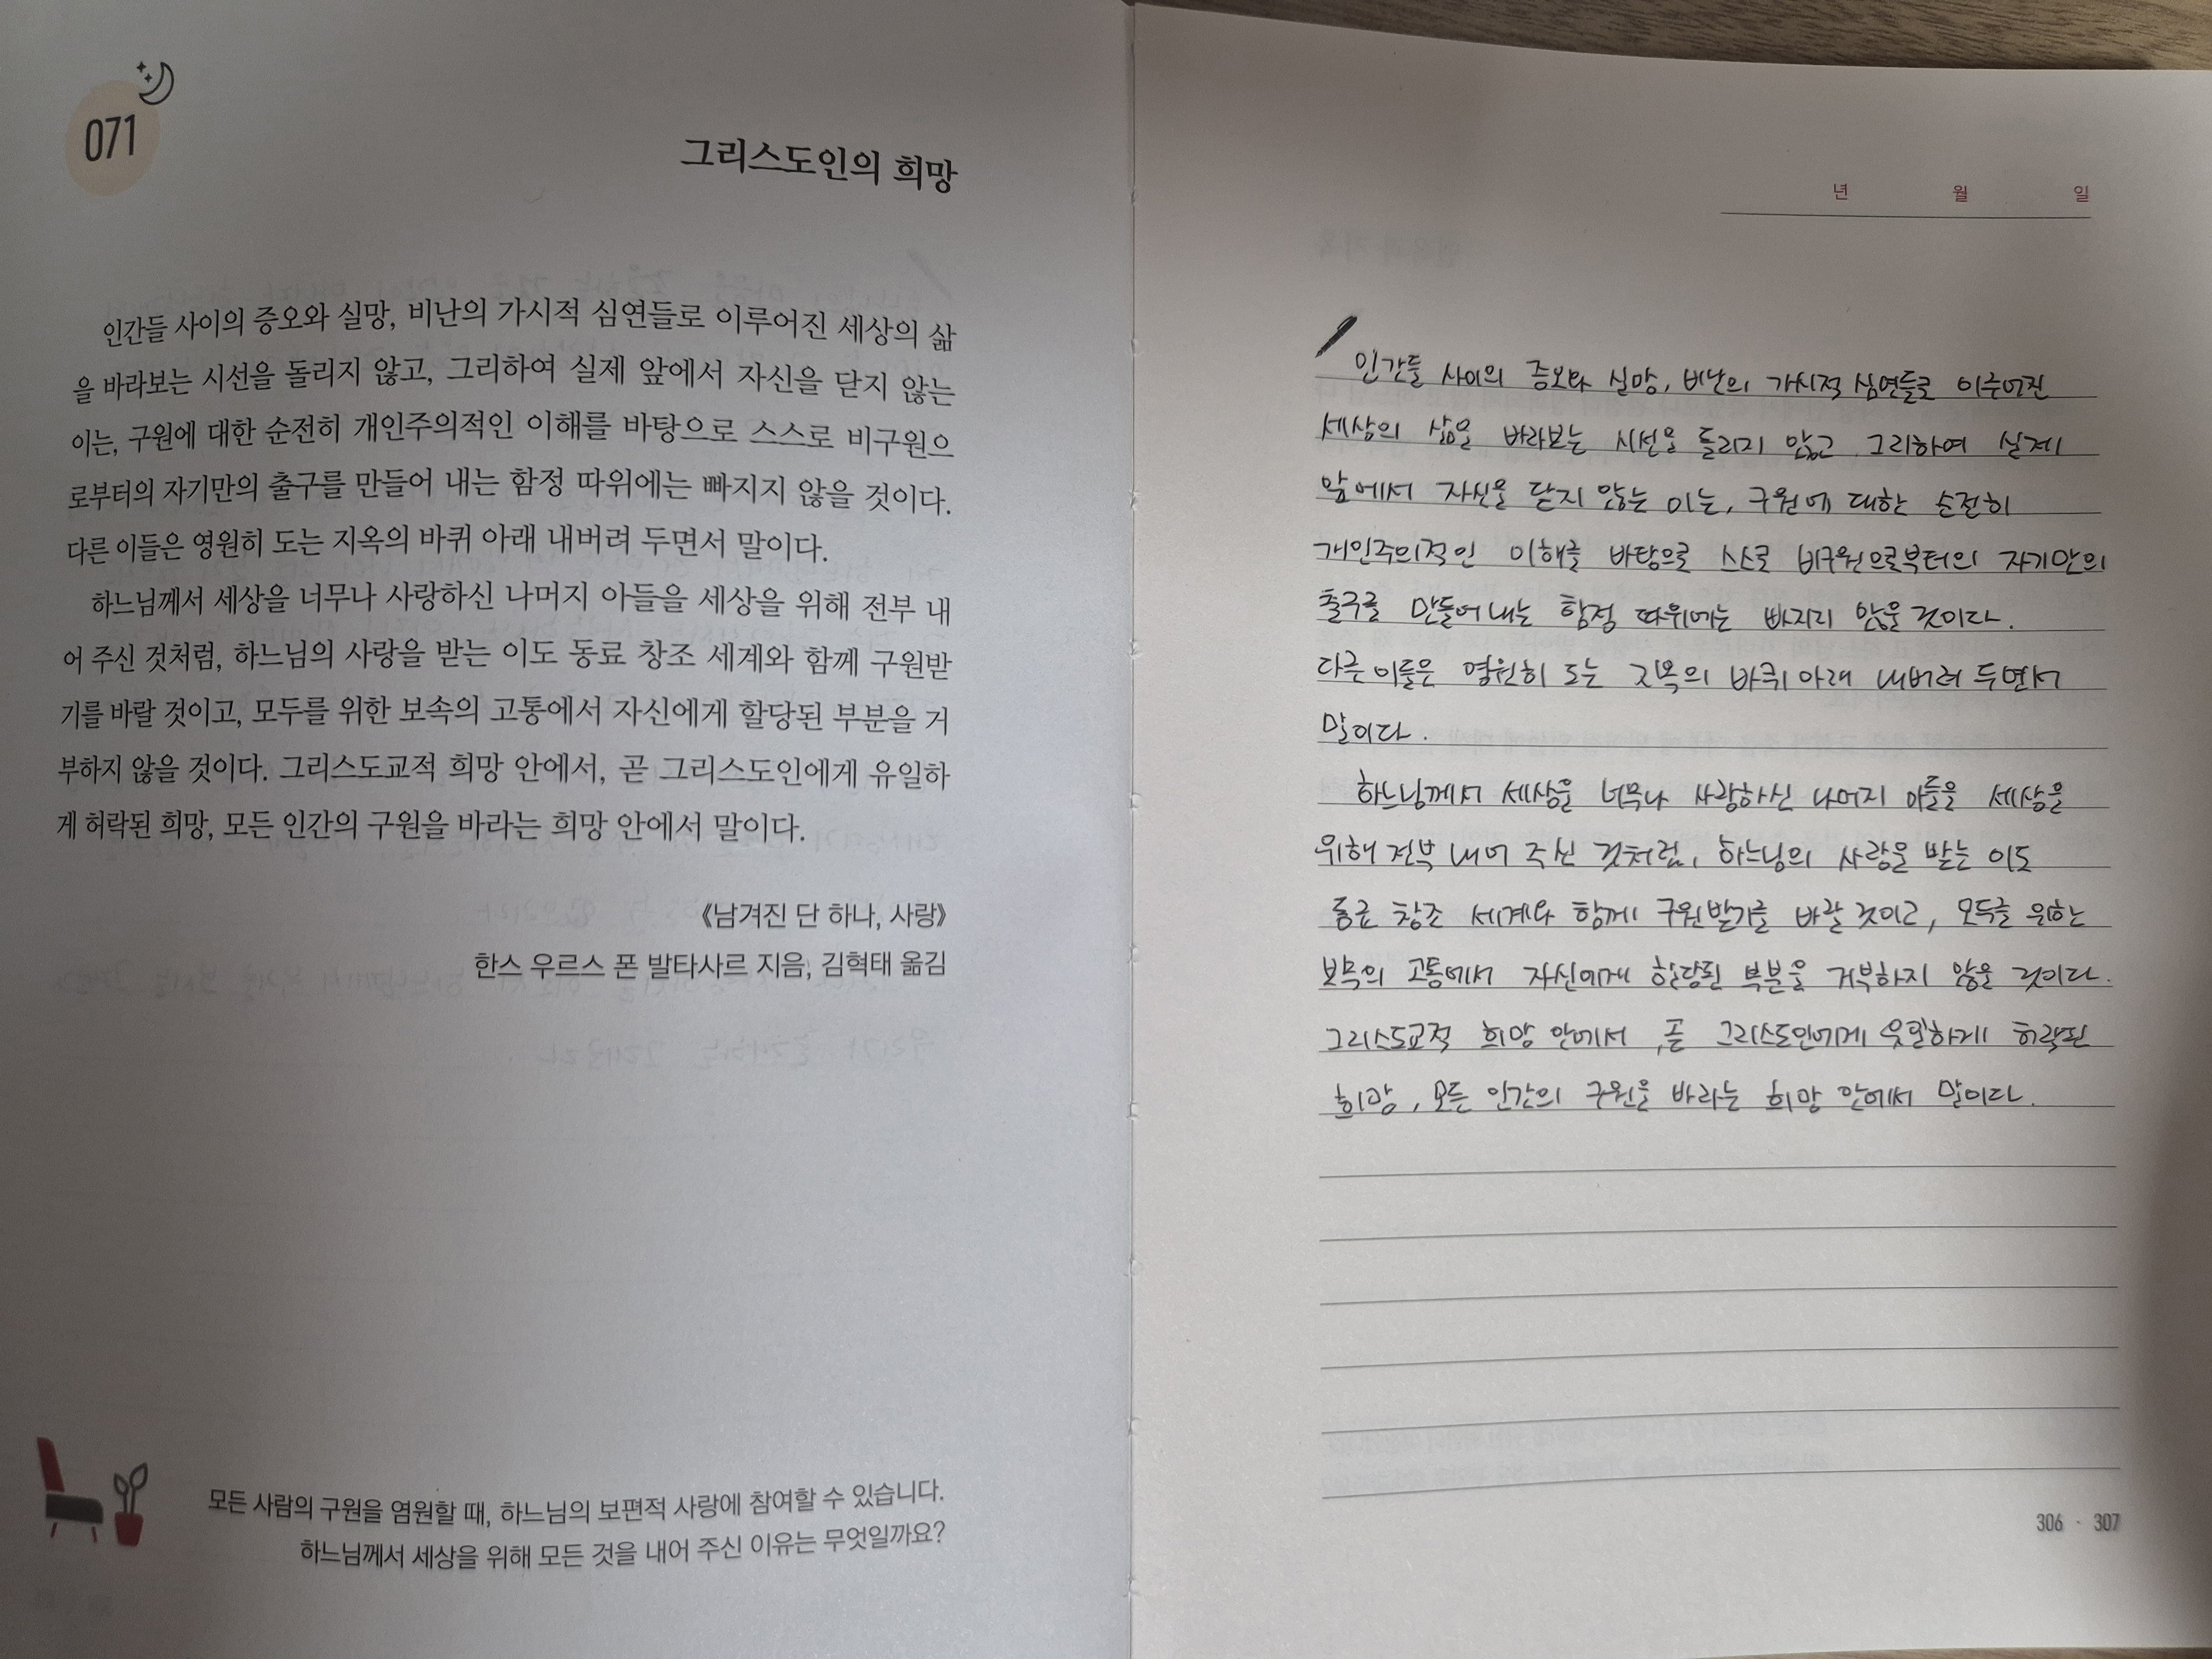 071
그리스도인의 희망
인간들 사이의 증오와 실망, 비난의 가시적 심연들로 이루어진 세상의 삶
을 바라보는 시선을 돌리지 않고, 그리하여 실제 앞에서 자신을 닫지 않는
이는, 구원에 대한 순전히 개인주의적인 이해를 바탕으로 스스로 비구원으
로부터의 자기만의 출구를 만들어 내는 함정 따위에는 빠지지 않을 것이다.
다른 이들은 영원히 도는 지옥의 바퀴 아래 내버려 두면서 말이다.
하느님께서 세상을 너무나 사랑하신 나머지 아들을 세상을 위해 전부 내
어 주신 것처럼, 하느님의 사랑을 받는 이도 동료 창조 세계와 함께 구원받
기를 바랄 것이고, 모두를 위한 보속의 고통에서 자신에게 할당된 부분을 거
부하지 않을 것이다. 그리스도교적 희망 안에서, 곧 그리스도인에게 유일하
게 허락된 희망, 모든 인간의 구원을 바라는 희망 안에서 말이다.
《남겨진 단 하나, 사랑》
한스 우르스 폰 발타사르 지음, 김혁태 옮김
모든 사람의 구원을 염원할 때, 하느님의 보편적 사랑에 참여할 수 있습니다.
하느님께서 세상을 위해 모든 것을 내어 주신 이유는 무엇일까요?
년 월 일
인간들 사이의 증오와 실망, 비난의 가시적 심연들로 이루어진
세상의 삶을 바라보는 시선을 돌리지 않고 그리하여 실제
앞에서 자신을 닫지 않는 이는, 구원에 대한 순전히
개인주의적인 이해를 바탕으로 스스로 비구원으로부터의 자기만의
출구를 만들어 내는 함정 따위에는 빠지지 않을 것이다.
다른 이들은 영원히 도는 지옥의 바퀴 아래 내버려 두면서
말이다.
하느님께서 세상을 너무나 사랑하신 나머지 아들을 세상을
위해 전부 내어 주신 것처럼, 하느님의 사랑을 받는 이도
동료 창조 세계와 함께 구원받기를 바랄 것이고, 모두를 위한
보속의 고통에서 자신에게 할당된 부분을 거부하지 않을 것이다.
그리스도교적 희망 안에서, 곧 그리스도인에게 유일하게 허락된
희망, 모든 인간의 구원을 바라는 희망 안에서 말이다.
306 · 307